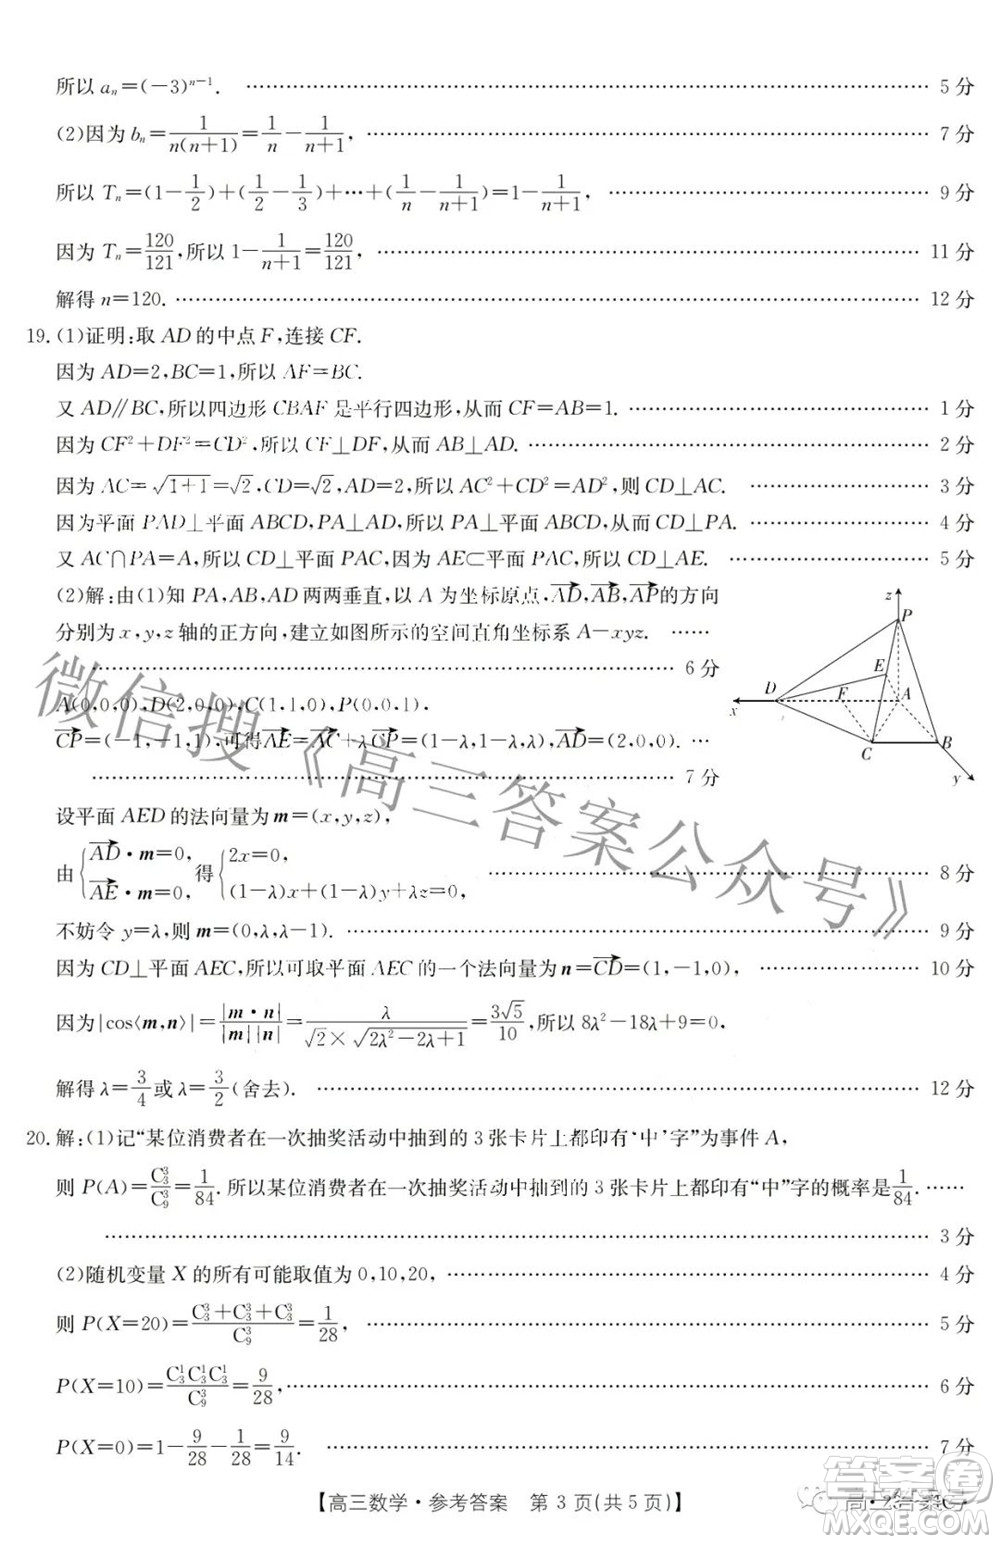 所以 aₙ=(-3)ⁿ⁻¹. …… 5 分
(2)因为 bₙ=1/(n(n+1))=1/n-1/(n+1), …… 7 分
所以 Tₙ=(1-1/2)+(1/2-1/3)+…+(1/n-1/(n+1))=1-1/(n+1), …… 9 分
因为 Tₙ=120/121,所以 1-1/(n+1)=120/121, …… 11 分
解得 n=120. …… 12 分
19. (1)证明:取 AD 的中点 F,连接 CF.
因为 AD=2,BC=1,所以 AF=BC.
又 AD∥BC,所以四边形 CBAF 是平行四边形,从而 CF=AB=1. …… 1 分
因为 CF²+DF²=CD²,所以 CF⊥DF,从而 AB⊥AD. …… 2 分
因为 AC=√(1+1)=√2,CD=√2,AD=2,所以 AC²+CD²=AD²,则 CD⊥AC. …… 3 分
因为平面 PAD⊥平面 ABCD,PA⊥AD,所以 PA⊥平面 ABCD,从而 CD⊥PA. …… 4 分
又 AC∩PA=A,所以 CD⊥平面 PAC,因为 AE⊂平面 PAC,所以 CD⊥AE. …… 5 分
(2)解:由(1)知 PA,AB,AD 两两垂直,以 A 为坐标原点,AD→,AB→,AP→的方向
分别为 x,y,z 轴的正方向,建立如图所示的空间直角坐标系 A-xyz. ……
…… 6 分
A(0,0,0),D(2,0,0),C(1,1,0),P(0,0,1),
CP→=(-1,-1,1),可得AE→=AC→+λCP→=(1-λ,1-λ,λ),AD→=(2,0,0). …
…… 7 分
z
P
E
D
F
A
x
C
B
y
设平面 AED 的法向量为 m=(x,y,z),
由{AD→·m=0, AE→·m=0, 得{2x=0, (1-λ)x+(1-λ)y+λz=0, …… 8 分
不妨令 y=λ,则 m=(0,λ,λ-1). …… 9 分
因为 CD⊥平面 AEC,所以可取平面 AEC 的一个法向量为 n=CD→=(1,-1,0), …… 10 分
因为|cos⟨m,n⟩|=|m·n|/(|m||n|)=λ/(√2×√(2λ²-2λ+1))=3√5/10,所以 8λ²-18λ+9=0,
解得 λ=3/4或 λ=3/2(舍去). …… 12 分
20. 解:(1)记“某位消费者在一次抽奖活动中抽到的 3 张卡片上都印有‘中’字”为事件 A,
则 P(A)=C₃³/C₉³=1/84.所以某位消费者在一次抽奖活动中抽到的 3 张卡片上都印有“中”字的概率是1/84. ……
…… 3 分
(2)随机变量 X 的所有可能取值为 0,10,20, …… 4 分
则 P(X=20)=(C₃³+C₃³+C₃³)/C₉³=1/28, …… 5 分
P(X=10)=C₃¹C₃¹C₃¹/C₉³=9/28, …… 6 分
P(X=0)=1-9/28-1/28=9/14. …… 7 分
【高三数学·参考答案 第 3 页(共 5 页)】
微信搜《高三答案公众号》
答案圈
MXQE.COM